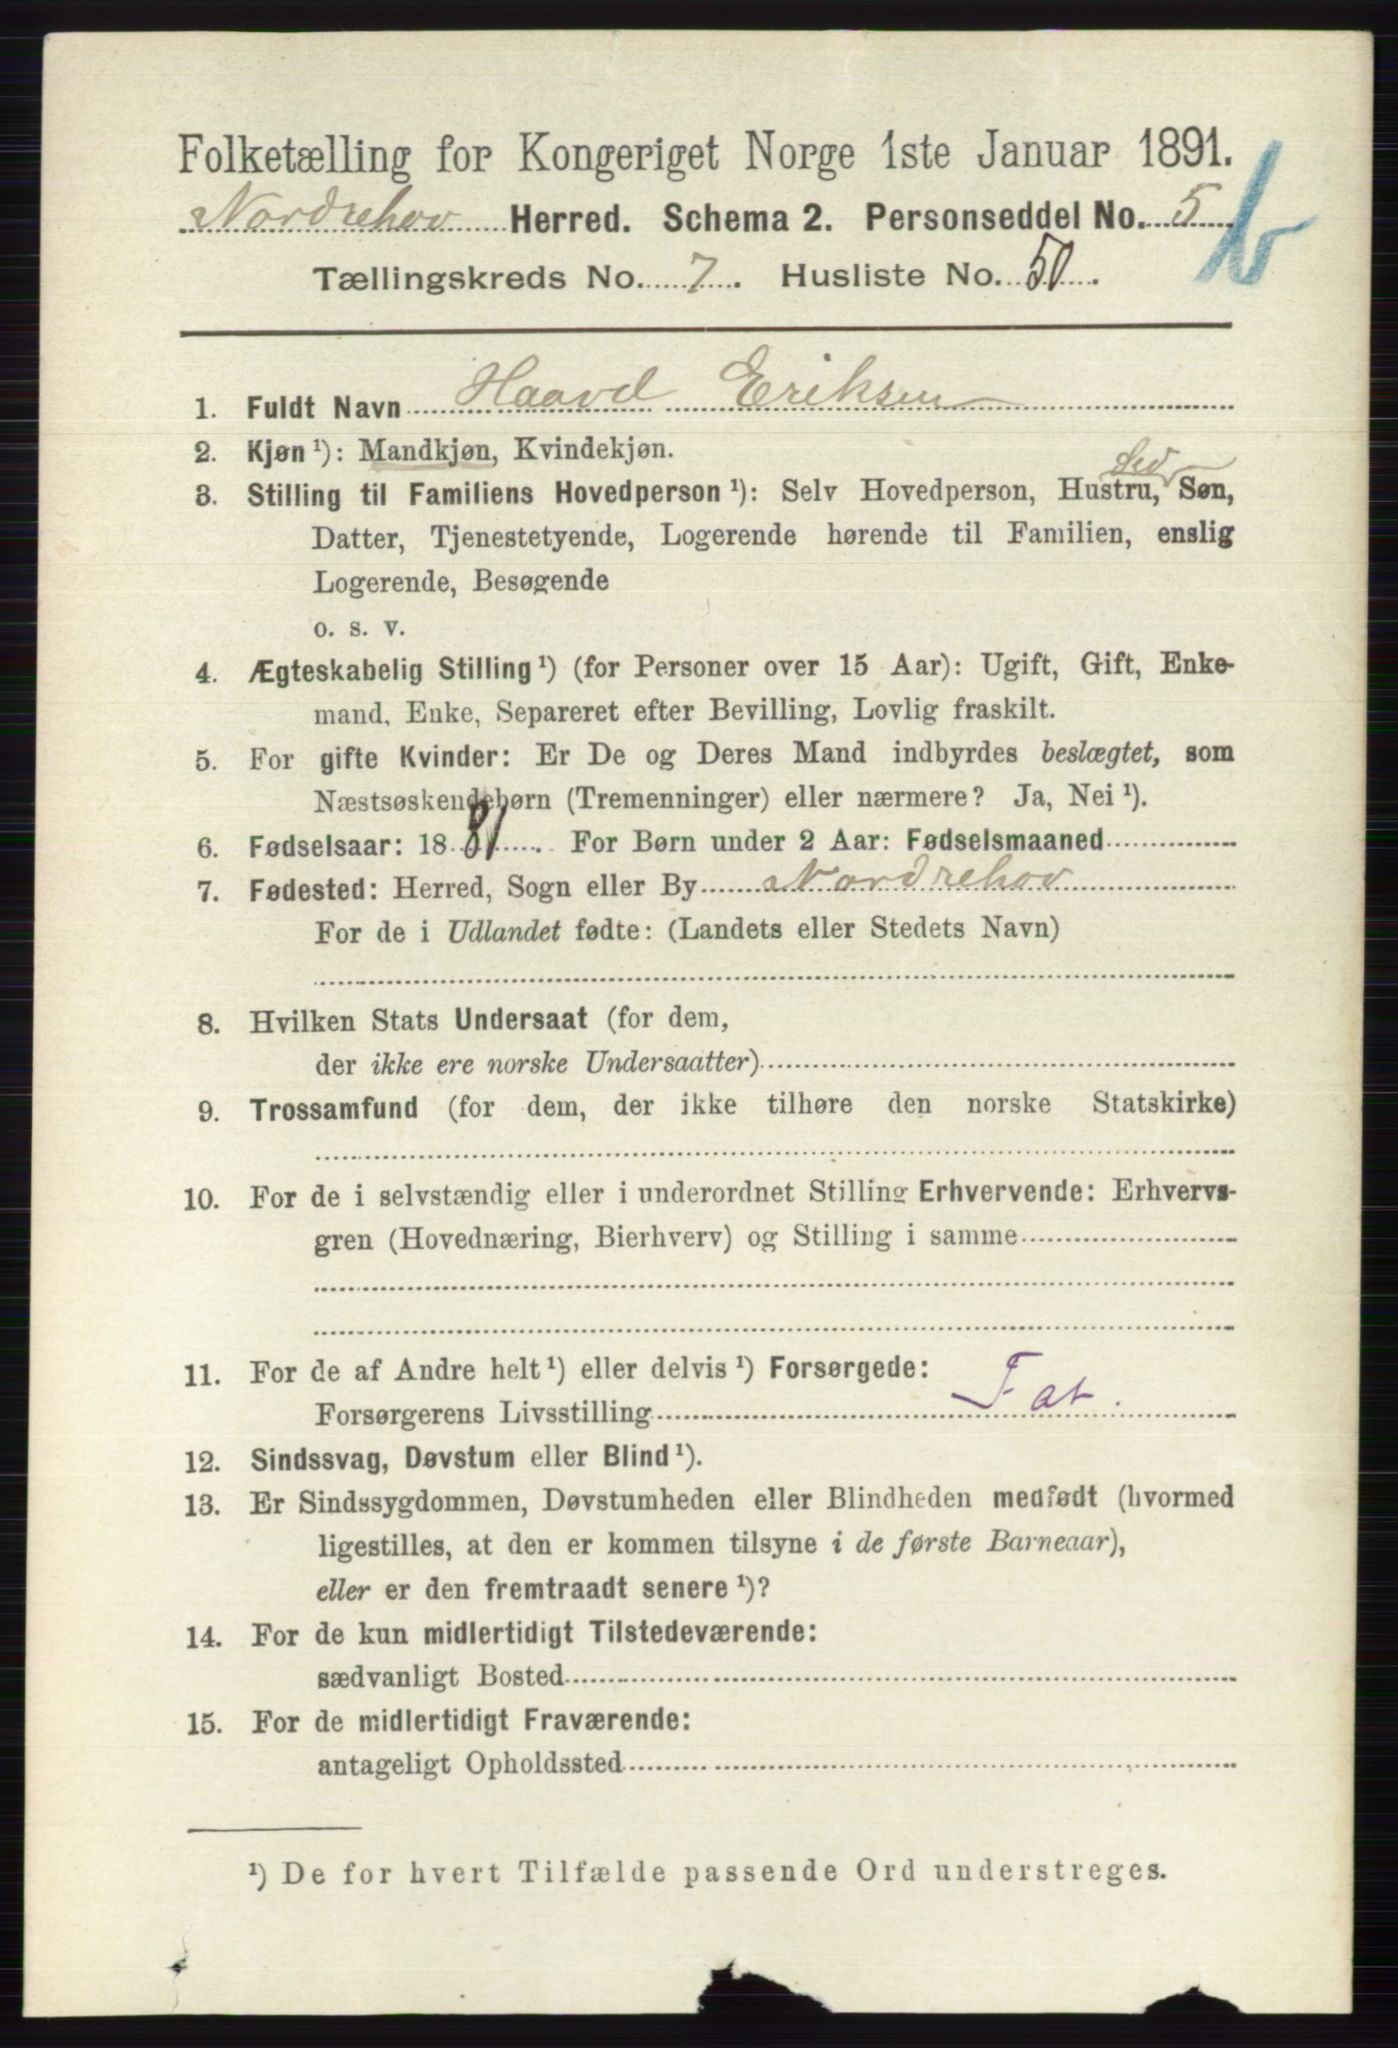 Folketælling for Kongeriget Norge 1ste Januar 1891.
Nordrehov Herred. Schema 2. Personseddel No. 5
b
Tællingskreds No. 7. Husliste No. 50.
1. Fuldt Navn Haavd Eriksen
2. Kjøn ¹): Mandkjøn, Kvindekjøn.
3. Stilling til Familiens Hovedperson ¹): Selv Hovedperson, Hustru, Søn,
Datter, Tjenestetyende, Logerende hørende til Familien, enslig
Logerende, Besøgende
o. s. v.
4. Ægteskabelig Stilling ¹) (for Personer over 15 Aar): Ugift, Gift, Enke-
mand, Enke, Separeret efter Bevilling, Lovlig fraskilt.
5. For gifte Kvinder: Er De og Deres Mand indbyrdes beslægtet, som
Næstsøskendebørn (Tremenninger) eller nærmere? Ja, Nei ¹).
6. Fødselsaar: 1881. For Børn under 2 Aar: Fødselsmaaned
7. Fødested: Herred, Sogn eller By Nordrehov
For de i Udlandet fødte: (Landets eller Stedets Navn)
8. Hvilken Stats Undersaat (for dem,
der ikke ere norske Undersaatter)
9. Trossamfund (for dem, der ikke tilhøre den norske Statskirke)
10. For de i selvstændig eller i underordnet Stilling Erhvervende: Erhvervs-
gren (Hovednæring, Bierhverv) og Stilling i samme
11. For de af Andre helt ¹) eller delvis ¹) Forsørgede:
Forsørgerens Livsstilling Fat.
12. Sindssvag, Døvstum eller Blind ¹).
13. Er Sindssygdommen, Døvstumheden eller Blindheden medfødt (hvormed
ligestilles, at den er kommen tilsyne i de første Barneaar),
eller er den fremtraadt senere ¹)?
14. For de kun midlertidigt Tilstedeværende:
sædvanligt Bosted
15. For de midlertidigt Fraværende:
antageligt Opholdssted
¹) De for hvert Tilfælde passende Ord understreges.